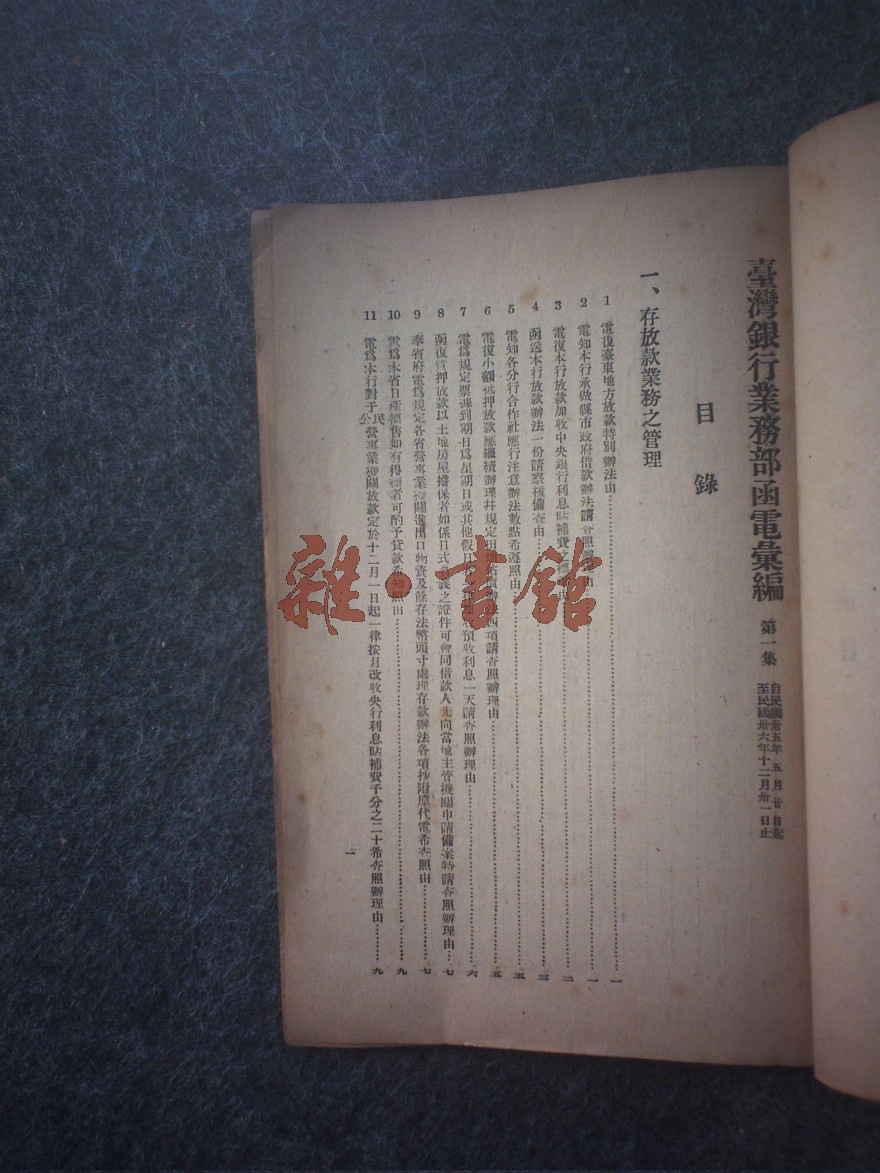 臺灣銀行業務部函電彙編 第一集 自民國卅五年五月廿日起 至民國卅六年十二月卅一日止
目錄
一、存放款業務之管理
1 電復臺東地方放款特別辦法由 一
2 電知本行承做縣市政府借款辦法請查照辦理由 一
3 電復本行放款加收中央銀行利息貼補費之 由 二
4 函送本行放款辦法一份請察核備查由 三
5 電知各分行合作社應行注意辦法數點希遵照由 五
6 電復小額抵押放款應繼續辦理幷規定 辦法四項請查照辦理由 五
7 電爲規定票課到期日爲星期日或其他假日 預收利息一天請查照辦理由 六
8 函復質押放款以土地房屋擔保者如係日式名義之證件可會同借款人先向當地主管機關申請備案特請查照辦理由 七
9 奉省府電爲規定各省營事業機關進出口物資及餘存法幣頭寸處理存款辦法各項抄附原代電希查照由 七
10 電爲本省日產標售如有得標者可酌予貸款希知照由 九
11 電爲本行對于公民營事業機關放款定於十二月一日起一律按月改收央行利息貼補費千分之二十希查照辦理由 九
一
雜·書館